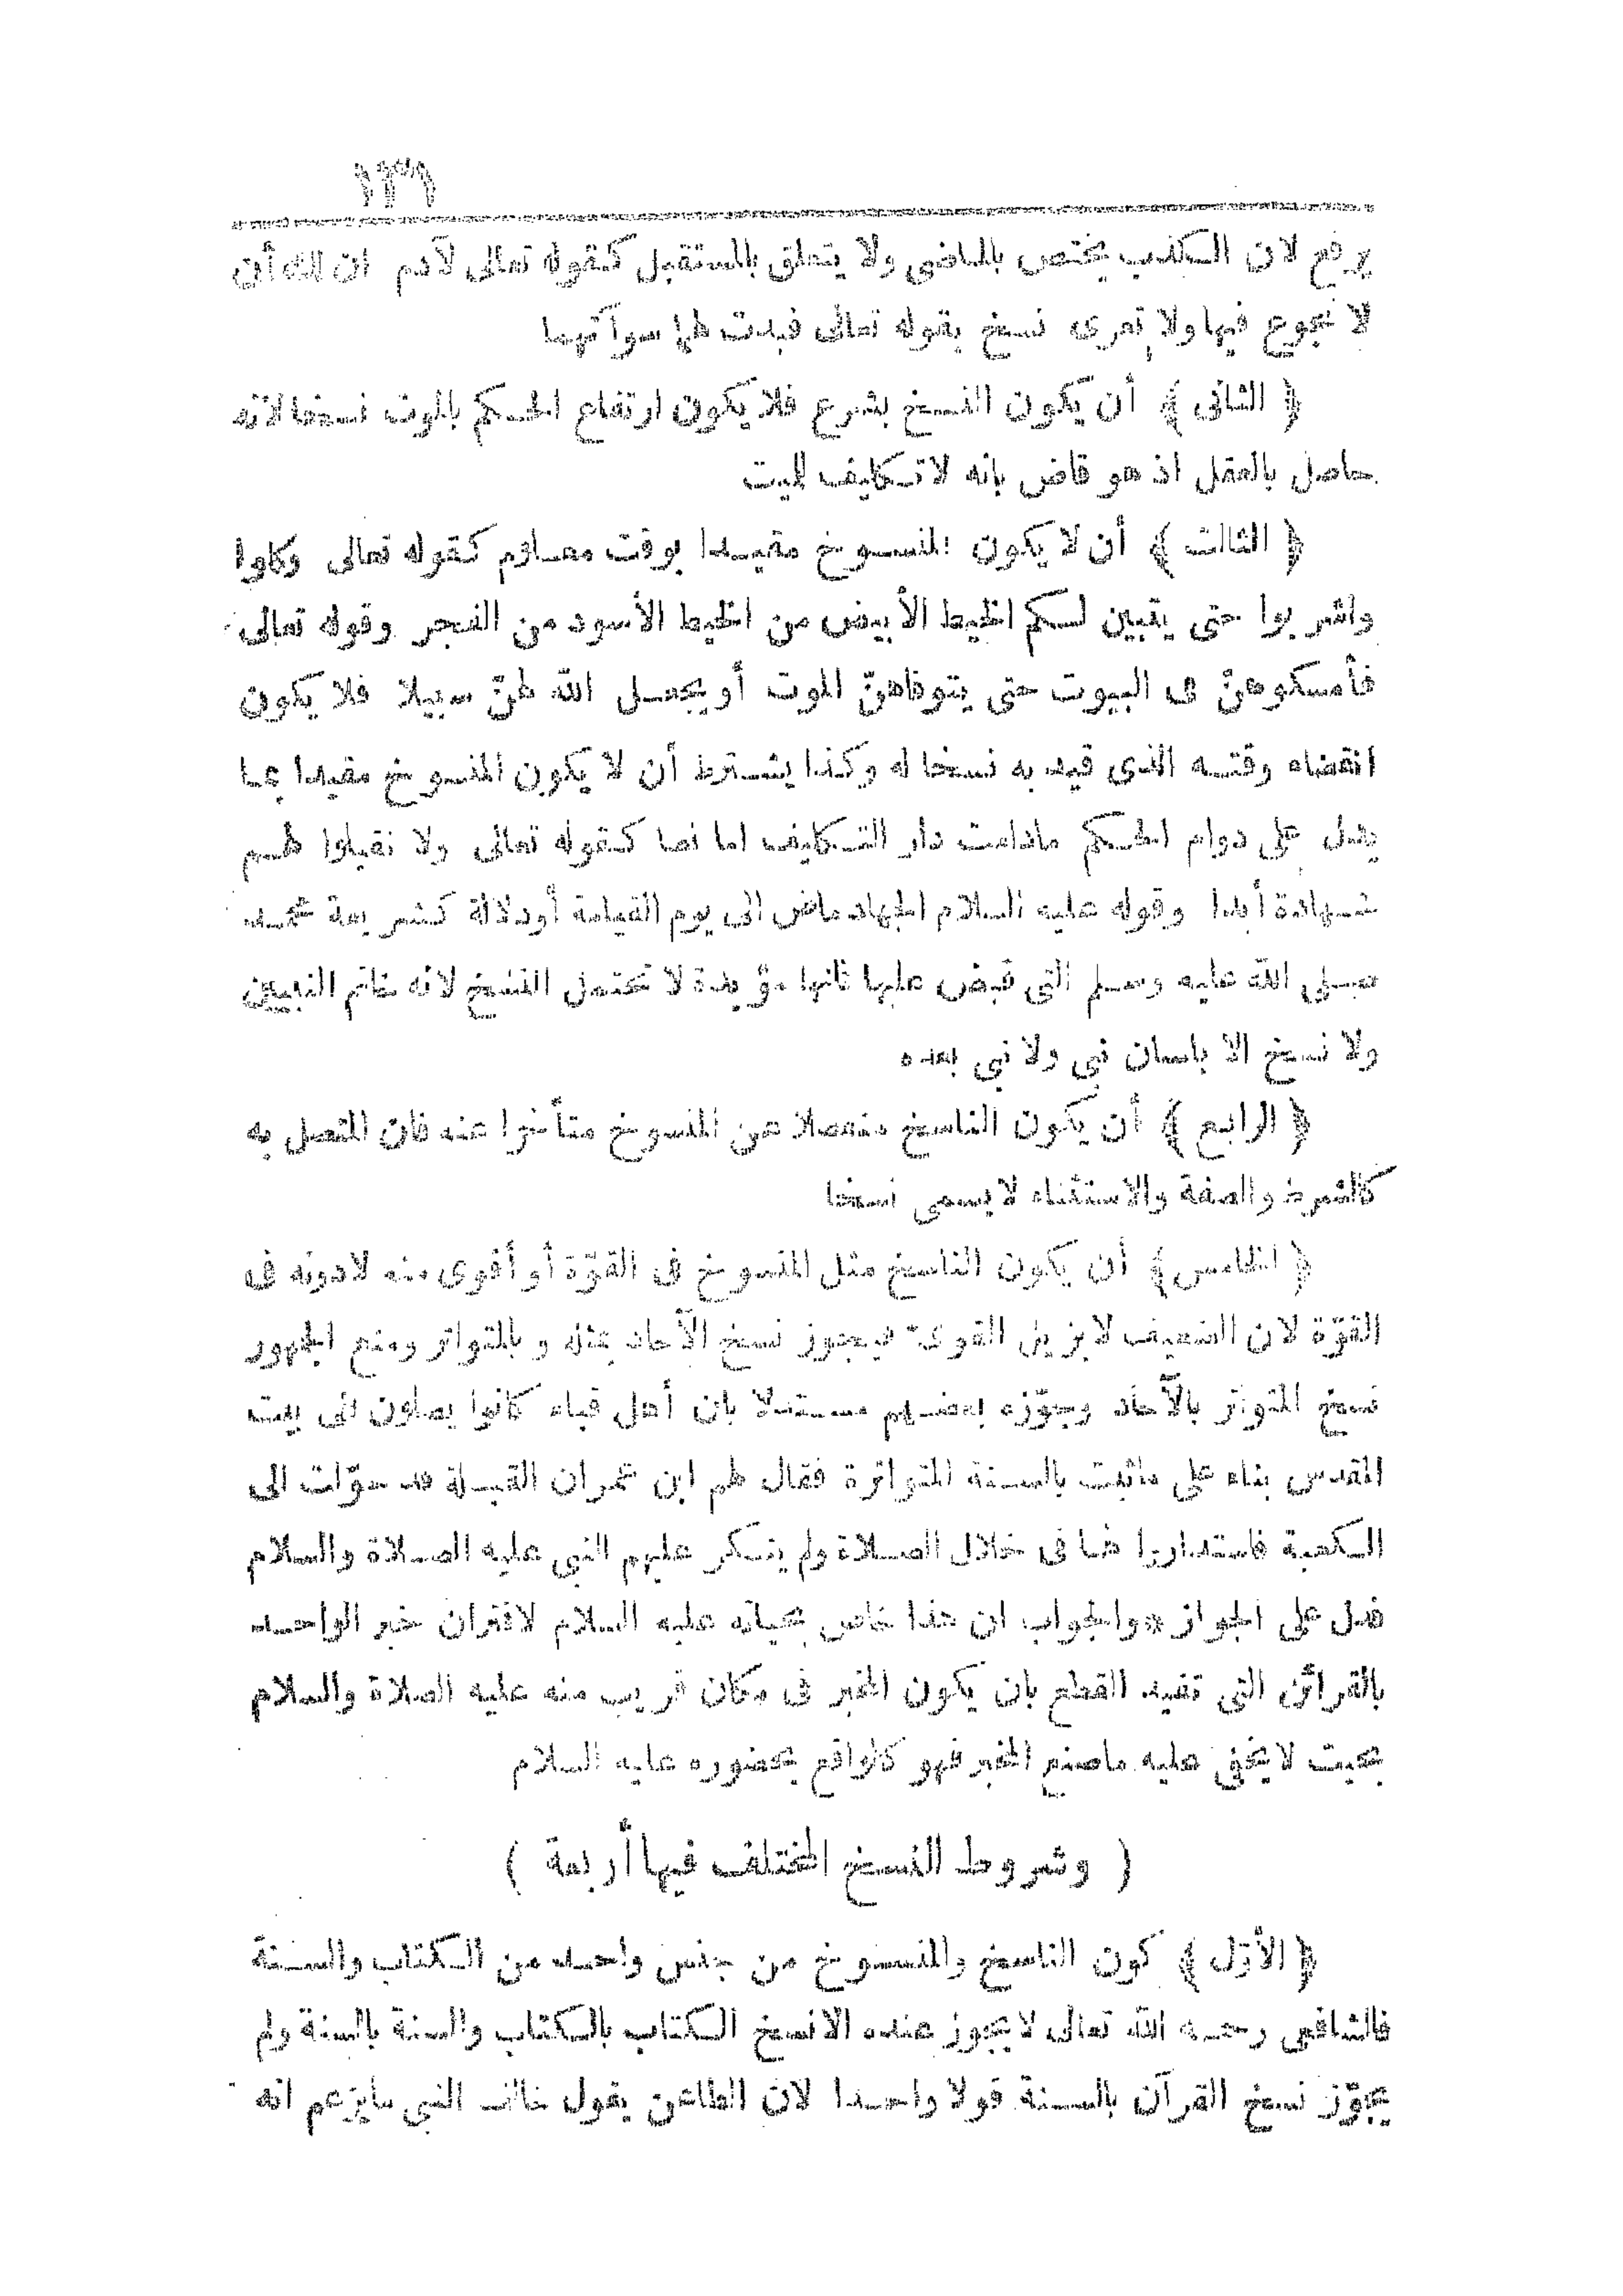 ١٣٩
يرفع لان الكذب يختص بالماضى ولا يتعلق بالمستقبل كقوله تعالى لآدم ان لك أن
لا تجوع فيها ولا تعرى نسخ بقوله تعالى فبدت لهما سوآتهما
﴿ الثانى ﴾ أن يكون النسخ بشرع فلا يكون ارتفاع الحكم بالموت نسخا لانه
حاصل بالعقل اذ هو قاض بانه لا تكليف لميت
﴿ الثالث ﴾ أن لا يكون المنسوخ مقيدا بوقت معلوم كقوله تعالى وكلوا
واشربوا حتى يتبين لكم الخيط الأبيض من الخيط الأسود من الفجر وقوله تعالى
فأمسكوهنّ فى البيوت حتى يتوفاهنّ الموت أو يجعل الله لهنّ سبيلا فلا يكون
انقضاء وقته الذى قيد به نسخا له وكذا يشترط أن لا يكون المنسوخ مقيدا بما
يدل على دوام الحكم مادامت دار التكليف اما نصا كقوله تعالى ولا تقبلوا لهم
شهادة أبدا وقوله عليه السلام الجهاد ماض الى يوم القيامة أو دلالة كشريعة محمد
صلى الله عليه وسلم التى قبض عليها فانها مؤبدة لا تحتمل النسخ لانه خاتم النبيين
ولا نسخ الا بلسان نبى ولا نبى بعده
﴿ الرابع ﴾ أن يكون الناسخ منفصلا عن المنسوخ متأخرا عنه فان المتصل به
كالشرط والصفة والاستثناء لا يسمى نسخا
﴿ الخامس ﴾ أن يكون الناسخ مثل المنسوخ فى القوّة أو أقوى منه لا دونه فى
القوّة لان الضعيف لا يزيل القوىّ فيجوز نسخ الآحاد بمثله و بالمتواتر ومنع الجمهور
نسخ المتواتر بالآحاد وجوّزه بعضهم مستدلا بان أهل قباء كانوا يصلون الى بيت
المقدس بناء على ماثبت بالسنة المتواترة فقال لهم ابن عمر ان القبلة قد حوّلت الى
الكعبة فاستداروا لها فى خلال الصلاة ولم ينكر عليهم النبى عليه الصلاة والسلام
فدل على الجواز * والجواب ان هذا خاص بحياته عليه السلام لاقتران خبر الواحد
بالقرائن التى تفيد القطع بان يكون المخبر فى مكان قريب منه عليه الصلاة والسلام
بحيث لا يخفى عليه ماصنع المخبر فهو كالواقع بحضوره عليه السلام
( وشروط النسخ المختلف فيها أربعة )
﴿ الأوّل ﴾ كون الناسخ والمنسوخ من جنس واحد من الكتاب والسنة
فالشافعى رحمه الله تعالى لا يجوز عنده الا نسخ الكتاب بالكتاب والسنة بالسنة ولم
يجوّز نسخ القرآن بالسنة قولا واحدا لان الطاعن يقول خالف النبى مايزعم انه